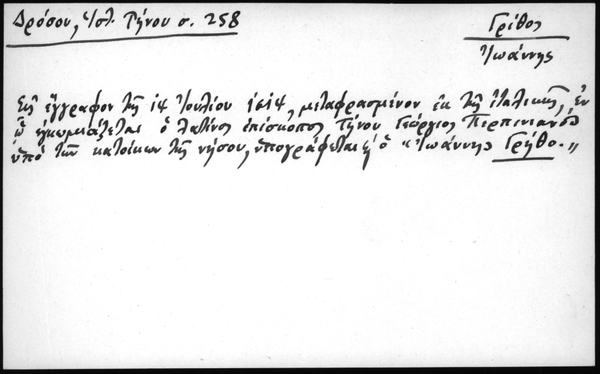 Δρόσου, Ἱστ. Τήνου σ. 258
Γρίθος
Ἰωάννης
Εἰς ἔγγραφον τῆς 14 Ἰουλίου 1614, μεταφρασμένον ἐκ τῆς ἰταλικῆς, ἐν
ᾧ ἐγκωμιάζεται ὁ λατῖνος ἐπίσκοπος Τήνου Γεώργιος Περπινιανὸς
ὑπὸ τῶν κατοίκων τῆς νήσου, ὑπογράφεται κ' ὁ "Ἰωάννης Γρῆθο."